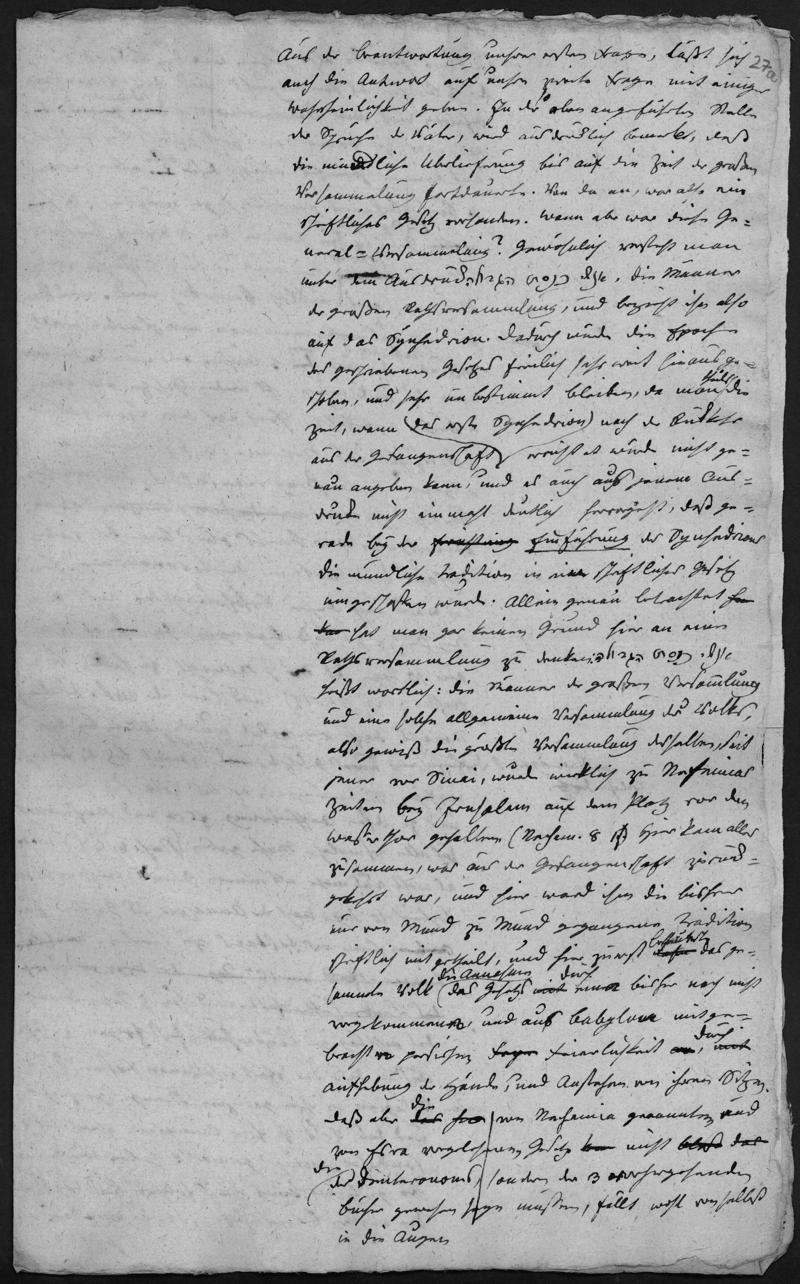 27a
Aus der Beantwortung unsrer ersten Frage, läßt sich
auch die Antwort auf unsre zweite Frage mit einiger
Wahrscheinlichkeit geben. In der oben angeführten Stelle
der Sprüche der Väter, wird ausdrücklich bemerkt, daß
die mündliche Überlieferung bis auf die Zeit der großen
Versammlung fortdauerte. Von da an, war also ein
schriftliches Gesetz vorhanden. Wann aber war diese Ge-
neral-Versammlung? Gewöhnlich versteht man
unter dem Ausdruck אנשי כנסת הגדולה, die Männer
der großen Rathsversammlung, und bezieht ihn also
auf das Synhedrion. Dadurch würde die Epoche
des geschriebenen Gesetzes freilich sehr weit hinausge-
schoben, und sehr unbestimmt bleiben, da man theils die
Zeit, wann (das erste Synhedrion) nach der Rückkehr
aus der Gefangenschaft errichtet wurde nicht ge-
nau angeben kann, und es auch aus jenem Aus-
druck nicht einmahl deutlich hervorgeht, daß ge-
rade bey der Einführung des Synhedrions
die mündliche Tradition in ein schriftliches Gesetz
umgeschaffen wurde. Allein genau betrachtet
hat man gar keinen Grund hier an eine
Rathsversammlung zu denken; אנשי כנסת הגדולה
heißt wörtlich: die Männer der großen Versammlung
und eine solche allgemeine Versammlung des Volks,
also gewiß die größte Versammlung desselben, seit
jener vor Sinai, wurde wirklich zu Nehemias
Zeiten bey Jerusalem auf dem Platz vor dem
Wasserthor gehalten (Nehem. 8 Hier kam alles
zusammen, was aus der Gefangenschaft zurück-
gekehrt war, und hier ward ihm die bisher
nur von Mund zu Mund gegangene Tradition
schriftlich mitgetheilt, und hier zuerst das ge-
sammte Volk die Annahme des Gesetzes durch eine bisher noch nicht
vorgekommene, und aus Babylon mitge-
brachte persische Feierlichkeit, durch
Aufhebung der Hände, und Aufstehen von ihren Sitzen.
daß aber die von Nehemia genannten und
von Esra vorgelesenen Gesetz nicht
die des Deuteronoms, sondern der 3 vorhergehenden
Bücher gewesen seyn müssen, fällt wohl von selbst
in die Augen